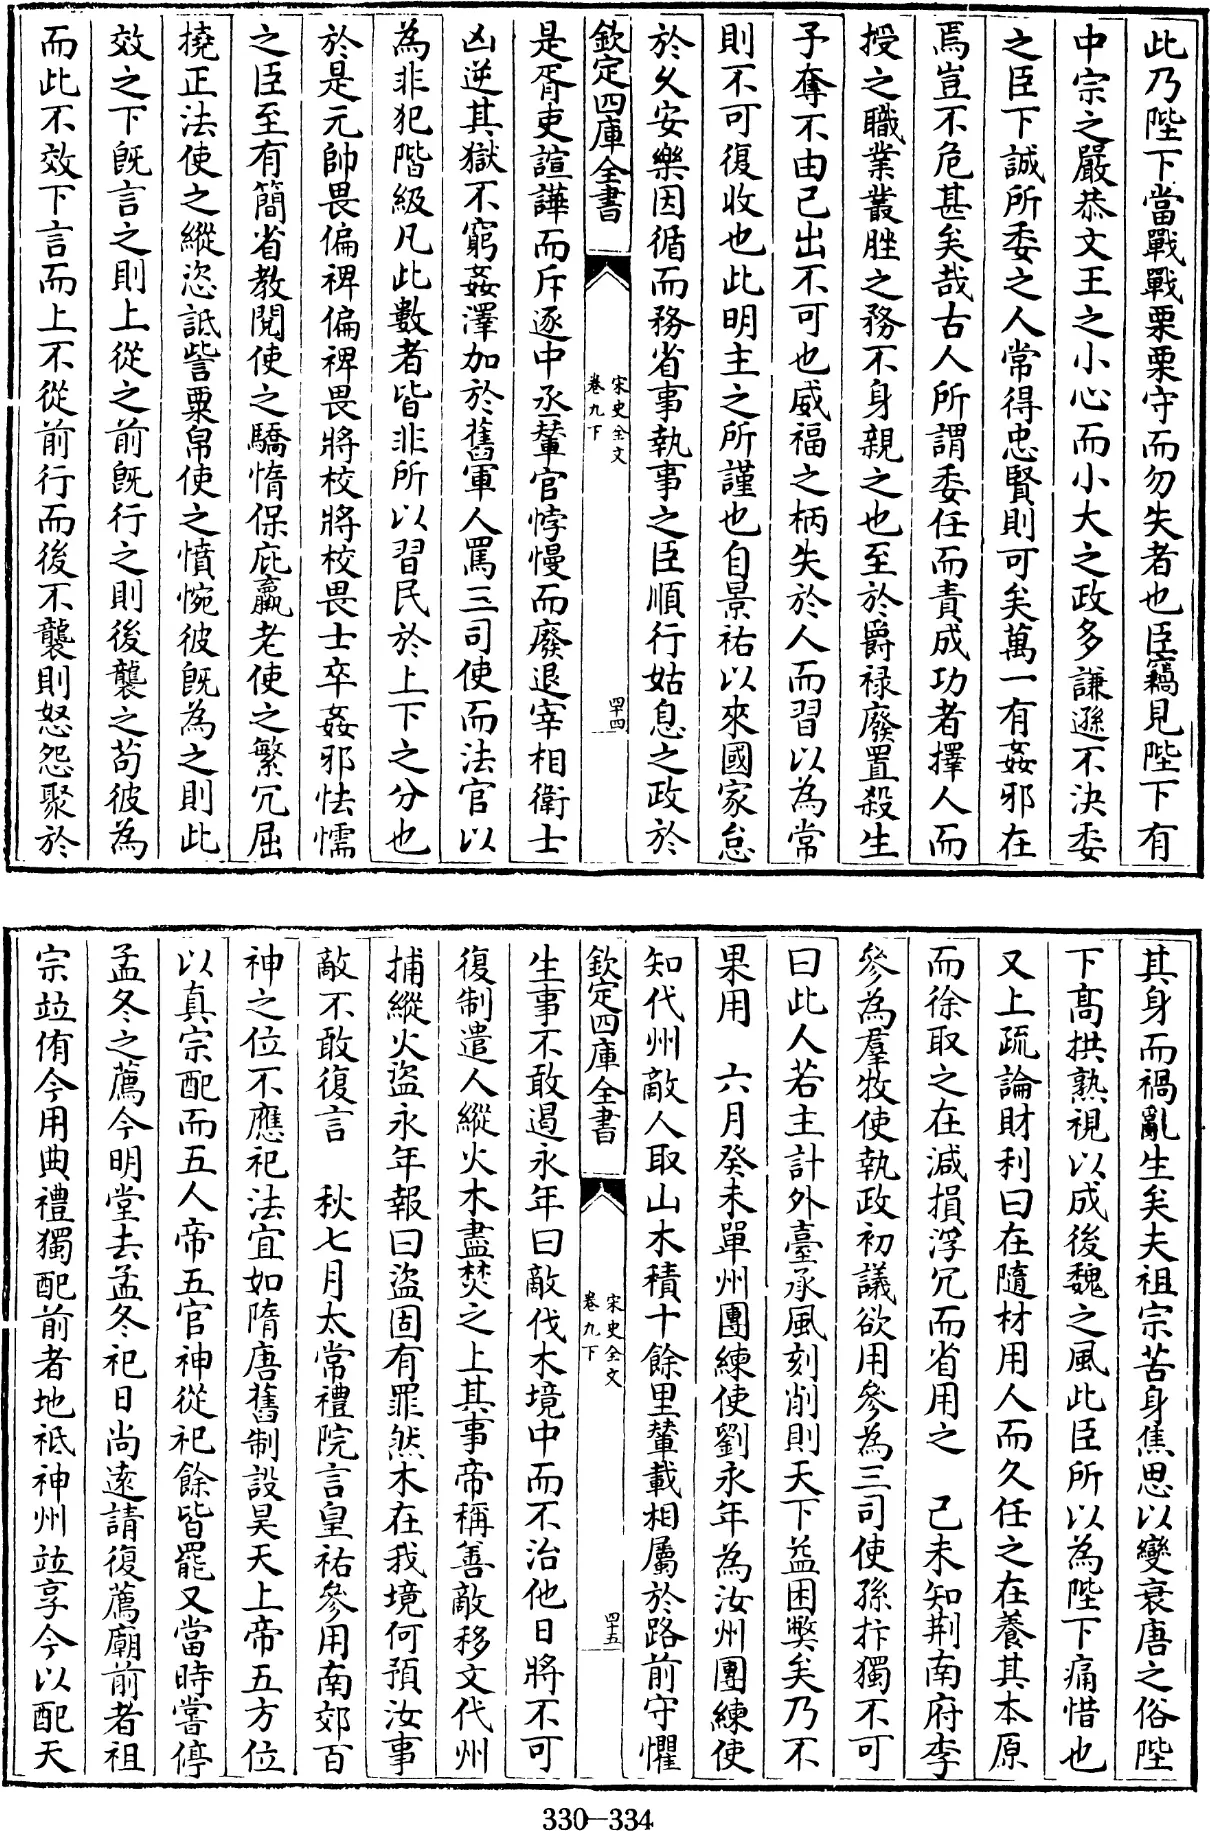 此乃陛下當戰戰栗栗守而勿失者也臣竊見陛下有
中宗之嚴恭文王之小心而小大之政多謙遜不決委
之臣下誠所委之人常得忠賢則可矣萬一有姦邪在
焉豈不危甚矣哉古人所謂委任而責成功者擇人而
授之職業叢脞之務不身親之也至於爵祿廢置殺生
予奪不由己出不可也威福之柄失於人而習以為常
則不可復收也此明主之所謹也自景祐以來國家怠
於久安樂因循而務省事執事之臣順行姑息之政於
欽定四庫全書
宋史全文
卷九下
四十四
是胥吏諠譁而斥逐中丞輦官悖慢而廢退宰相衛士
凶逆其獄不窮姦澤加於舊軍人罵三司使而法官以
為非犯階級凡此數者皆非所以習民於上下之分也
於是元帥畏偏裨偏裨畏將校將校畏士卒姦邪怯懦
之臣至有簡省教閱使之驕惰保庇羸老使之繁冗屈
撓正法使之縱恣詆訾粟帛使之憤惋彼旣為之則此
效之下旣言之則上從之前旣行之則後襲之苟彼為
而此不效下言而上不從前行而後不襲則怒怨聚於
其身而禍亂生矣夫祖宗苦身焦思以變衰唐之俗陛
下髙拱熟視以成後魏之風此臣所以為陛下痛惜也
又上疏論財利曰在隨材用人而久任之在養其本原
而徐取之在減損浮冗而省用之 己未知荆南府李
參為羣牧使執政初議欲用參為三司使孫抃獨不可
曰此人若主計外臺承風刻削則天下益困弊矣乃不
果用 六月癸未單州團練使劉永年為汝州團練使
知代州敵人取山木積十餘里輦載相屬於路前守懼
欽定四庫全書
宋史全文
卷九下
四十五
生事不敢遏永年曰敵伐木境中而不治他日將不可
復制遣人縱火木盡焚之上其事帝稱善敵移文代州
捕縱火盜永年報曰盜固有罪然木在我境何預汝事
敵不敢復言 秋七月太常禮院言皇祐參用南郊百
神之位不應祀法宜如隋唐舊制設昊天上帝五方位
以真宗配而五人帝五官神從祀餘皆罷又當時嘗停
孟冬之薦今明堂去孟冬祀日尚遠請復薦廟前者祖
宗竝侑今用典禮獨配前者地祇神州竝享今以配天
330—334